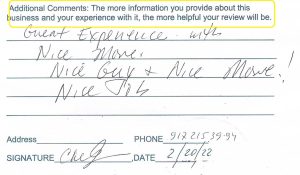 Additional Comments: The more information you provide about this
business and your experience with it, the more helpful your review will be.
Great Experience with
Nice Move.
Nice Guy & Nice Move!
Nice Job
Address PHONE 917 215 39-94
SIGNATURE ,DATE 2/20/22